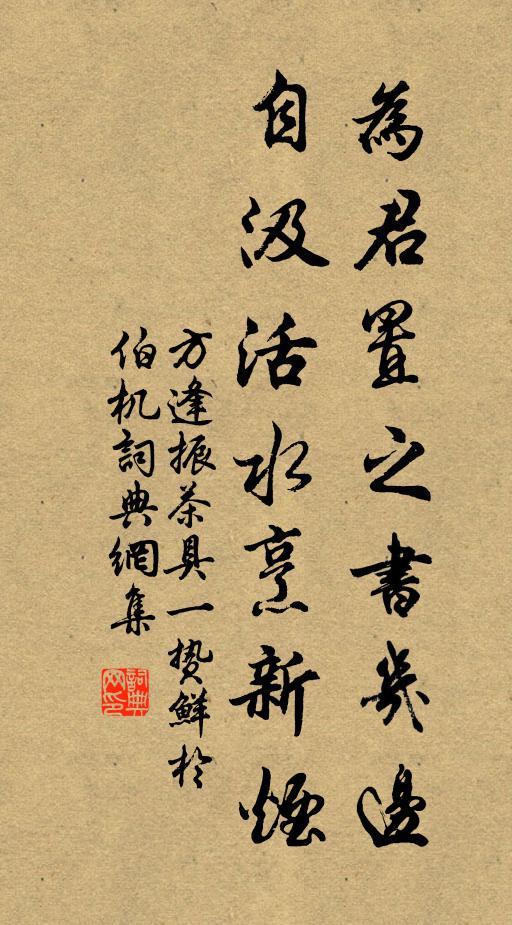 為君置之書几邊
自汲活水烹新煙
方逢振茶具一贄鮮於
伯机詞典網集
詞典网印